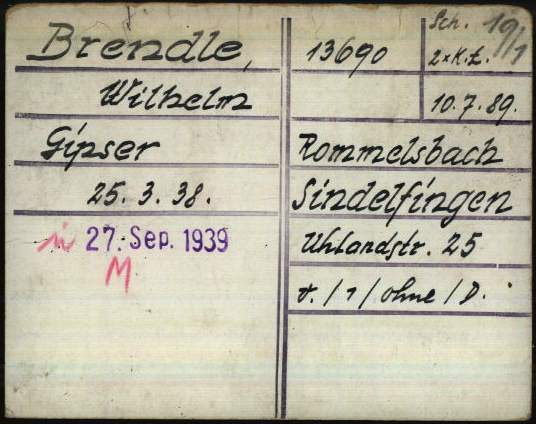 Brendle,
Wilhelm
Gipser
25. 3. 38.
in 27. Sep. 1939
M
13690
Sch. 19/1
2xK.L.
10.7.89.
Rommelsbach
Sindelfingen
Uhlandstr. 25
/ 1 / ohne / D.